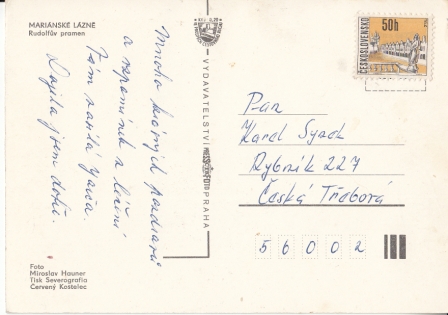 MARIÁNSKÉ LÁZNĚ
Rudolfův pramen
Mnoho krásných pozdravů
a vzpomínek z léčení
Vám zasílá
Dojela jsem dobře.
Foto
Miroslav Hauner
Tisk Severografia
Červený Kostelec
VYDAVATELSTVÍ
PRAHA
50h
ČESKOSLOVENSKO
Pan
Karel
Rybník 227
Česká Třebová
56002